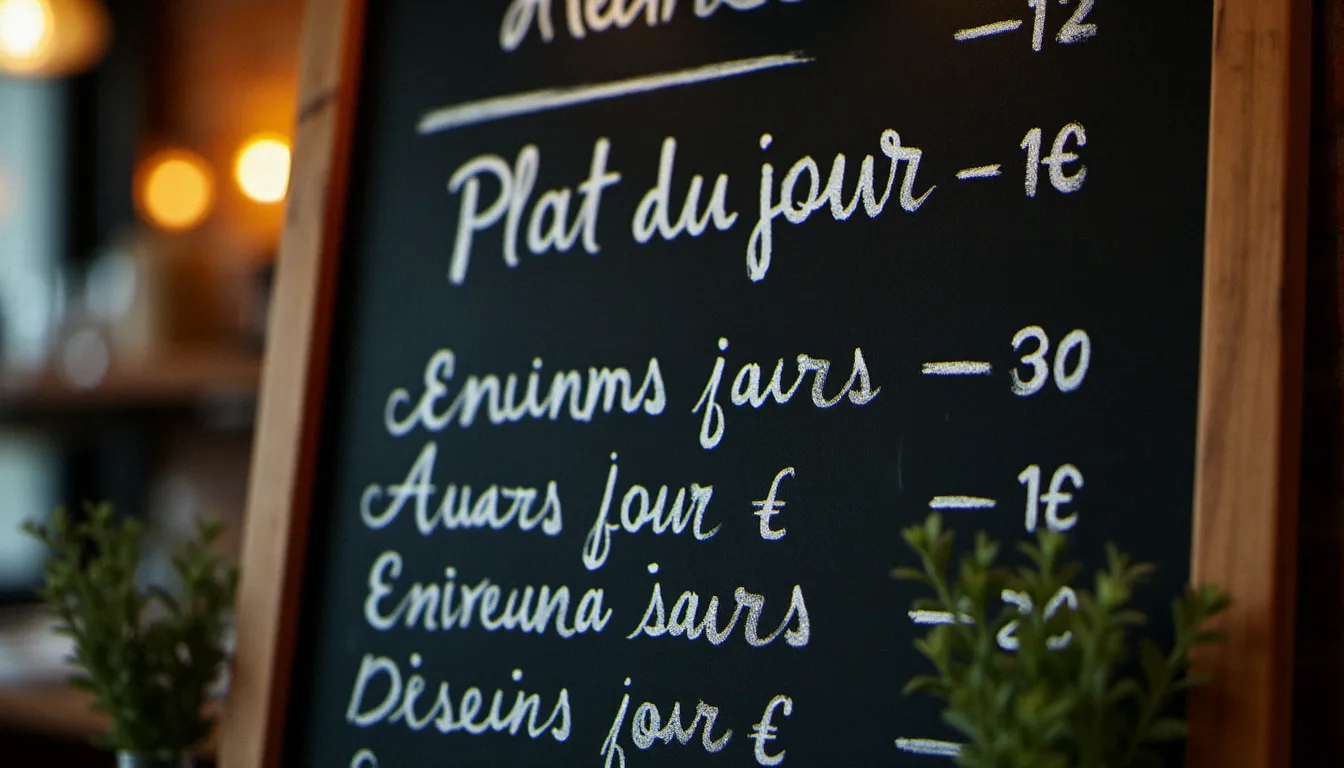 – 12
Plat du jour – 1€
Enuinms jaurs – 30
Auars jour € – 1€
Enireuna saurs –
Dèseins jour € –